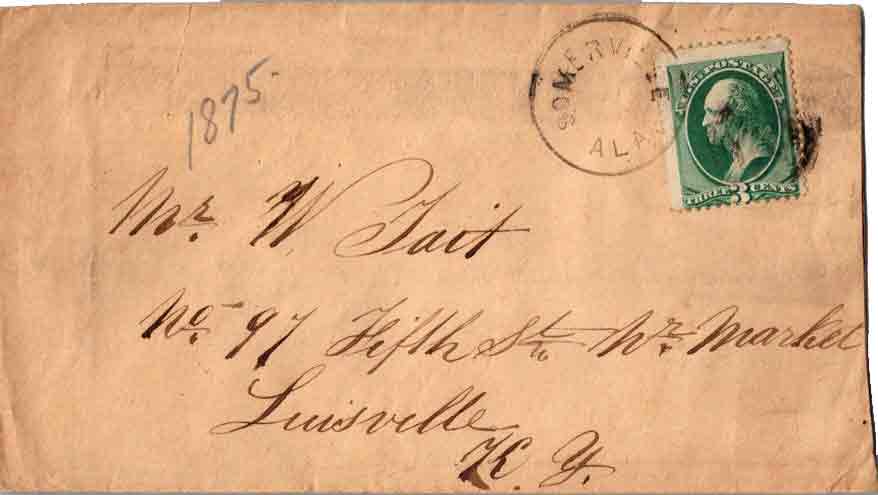 1875.
SOMERVILLE
ALA.
U.S. POSTAGE
THREE 3 CENTS
Mr. W. Tait
No. 97 Fifth St. Nr. Market
Luisville
K.Y.